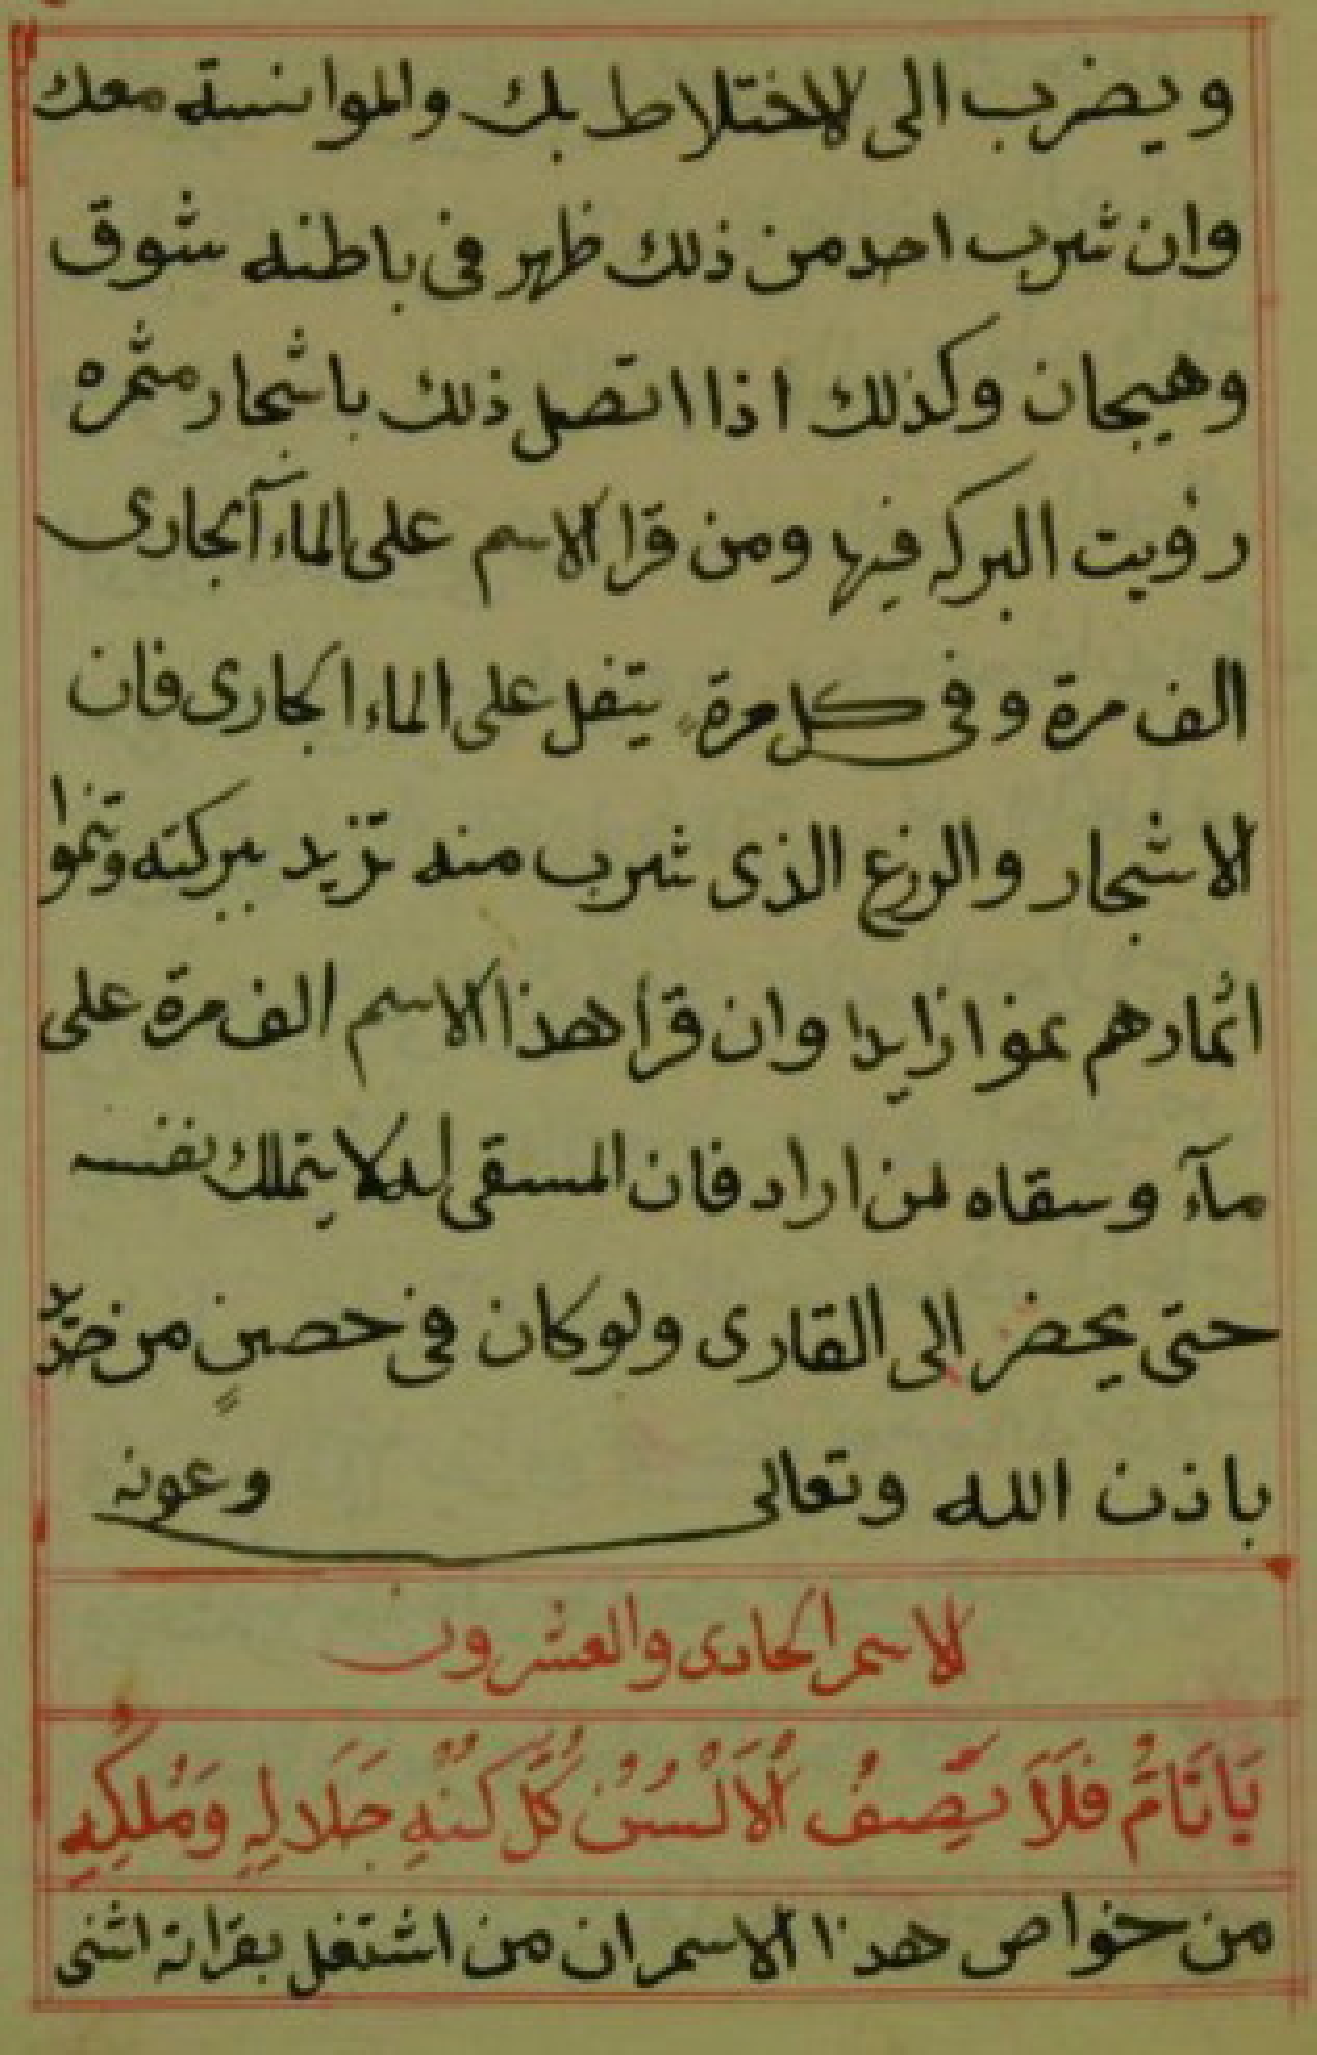 ويضرب الى الاختلاط بك والموانسة معك
وان شرب احد من ذلك ظهر فى باطنه شوق
وهيجان وكذلك اذا اتصل ذلك باشجار مثمره
رؤيت البركه فيها ومن قرا الاسم على الماء الجارى
الف مرة وفى كل مرة يتفل على الماء الجارى فان
الاشجار والزرع الذى شرب منه تزيد ببركته وتنموا
اثمارهم نموا زايدا وان قرأ هذا الاسم الف مرة على
مآء وسقاه لمن اراد فان المسقى له لا يتملك نفسه
حتى يحضر الى القارى ولو كان فى حصنٍ من
باذن الله وتعالى وعونه
الاسم الحادى والعشرون
يَا تَامُّ فَلَا تَصِفُ الْأَلْسُنُ كُلَّ كُنْهِ جَلَالِهِ وَمُلْكِهِ
من خواص هذا الاسم ان من اشتغل بقراته اثنى